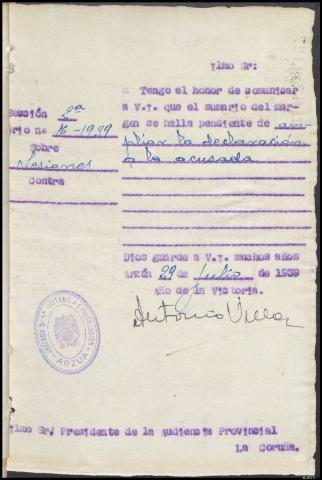 Ilmo Sr:
Tengo el honor de comunicar
a V.I. que el sumario del mar-
gen se halla pendiente de am-
pliar la declaración
a la acusada
Sección 2ª
rio nº 16-1939
Sobre
Lesiones
Contra
Dios guarde a V.I. muchos años
Arzúa 29 de Julio de 1939
Año de la Victoria.
Antonio Villar
JUZGADO DE 1ª INSTANCIA E INSTRUCCION
ARZUA
Ilmo Sr/ Presidente de la Audiencia Provincial
La Coruña.